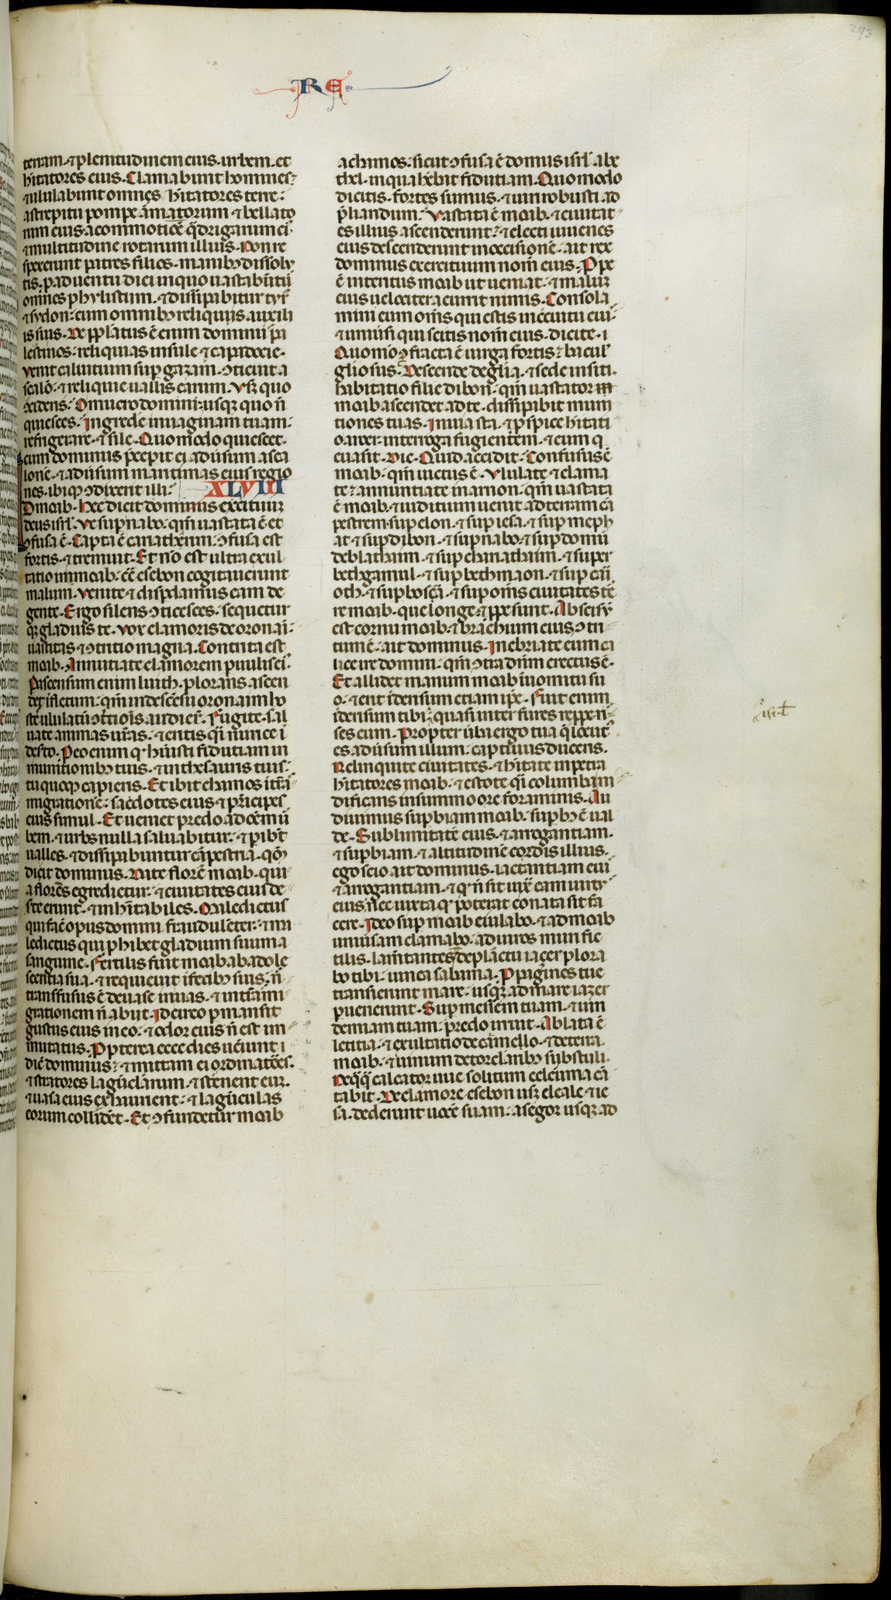 293
RE
terram · ⁊ plenitudinem eius · urbem · et
hitatores eius · Clamabunt homines ·
⁊ ululabunt omnes hitatores terre ·
a strepitu pompe armatorum ⁊ bellato
rum eius · a cōmotiōē q̄drigarum ei᷒ ·
⁊ multitudine rotarum illius · Non re
spexerunt patres filios · manibꝫ dissolu
tis · p aduentu diei in quo uastabūtur
omnes phylistiim · ⁊ dissipabitur tyr᷒
⁊ sydon · cum omnibꝫ reliquijs auxili
is suis · De pplatus ē enim dominus pa
lestinos · reliquias insule ⁊ capadocie ·
Venit caluitium sup gazam · ꝯticuit a
scalō · ⁊ reliquie uallis earum · Vsqꝫ quo
ꝯcidens · O mucro domini usqꝫ quo n̄
quiesces · Ingredere in uaginam tuam ·
refrigerare · ⁊ sile · Quomodo quiescet ·
cum dominus preceperit ei aduersum asca
lonē · ⁊ aduersum maritimas eius regio
nes · ibiqꝫ ꝯdixerit illi · XLVIII
D moab · hec dicit dominus exercituum
deus isrl · Ve sup nabo · qm̄ uastata ē et
ꝯfusa ē · Capta ē cariathiarim · ꝯfusa est
fortis · ⁊ tremuit · Et nō est ultra exul
tatio in moab · cōtra esebon cogitauerunt
malum · Venite ⁊ disperdamus eam de
gente · Ergo silens ꝯticesces · sequetur
qꝫ gladius te · Vox clamoris de oronaim ·
uastitas ⁊ ꝯtritio magna · Contrita est
moab · Annuntiate clamorem paruulis ei᷒ ·
P ascensum enim luith · plorans ascen
det in fletum · qm̄ in descēsu oronaim ho
stes ululatū ꝯtritiōis audierūt · Fugite · sal
uate animas ur̄as · ⁊ eritis q̄si mirice ī
deserto · Pro eo enim q᷒ habuisti fidutiam in
munitionibꝫ tuis · ⁊ in thesauris tuis ·
tu quoqꝫ capieris · Et ibit chamos ī trās
migrationē · sacerdotes eius ⁊ principes
eius simul · Et ueniet predo ad oēm ur
bem · ⁊ urbs nulla saluabitur · ⁊ peribūt
ualles · ⁊ dissipabuntur cāpestria · qm̄
dicit dominus · Date florem moab · qui
a florēs egredietur · ⁊ ciuitates eius de
serte erunt · ⁊ inhabitabiles · Maledictus
qui facit opus domini fraudulenter · ma
ledictus qui prohibet gladium suum a
sanguine · Fertilis fuit moab ab adole
scentia sua · ⁊ requieuit in fecibꝫ suis · n̄
transfusus ē de uase in uas · ⁊ in trāsmi
grationem n̄ abiit · Idcirco permansit
gustus eius in eo · ⁊ odor eius n̄ est im
mutatus · Propterea ecce dies ueniunt
dicit dominus · ⁊ mittam ei ordinatores ·
⁊ stratores laguncularum · ⁊ sternent eum ·
⁊ uasa eius exhaurient · ⁊ lagunculas
eorum collident · Et ꝯfundetur moab
a chamos · sicut ꝯfusa ē domus isrl a be
thel · in qua habebat fidutiam · Quomodo
dicitis · fortes sumus · ⁊ uiri robusti · ad
preliandum · Vastata ē moab · ⁊ ciuitat
es illius ascenderunt · ⁊ electi iuuenes
eius descenderunt in occisionē · ait rex
dominus exercituum nomen eius · Prope
ē interitus moab ut ueniat · ⁊ malum
eius uelociter accurrit nimis · Consola
mini eum omnes qui estis in circuitu eius
⁊ uniuersi qui scitis nomen eius · dicite ·
Quomodo ꝯfracta ē uirga fortis · bacul᷒
gliosus · Descende de glia · ⁊ sede in siti ·
habitatio filie dibon · qm̄ uastator
moab ascendet ad te · dissipabit muni
tiones tuas · In uia sta · ⁊ prospice hitati
o aroer · interroga fugientem · ⁊ eum q
euasit · Dic · Quid accidit · Confusus ē
moab · qm̄ uictus ē · Vlulate ⁊ clama
te · annuntiate in arnon · qm̄ uastata
ē moab · ⁊ iuditium uenit ad terram cā
pestrem · sup elon · ⁊ sup iesa · ⁊ sup meph
at · ⁊ sup dibon · ⁊ sup nabo · ⁊ sup domū
deblathaim · ⁊ sup chariathaim · ⁊ super
bethgamul · ⁊ sup bethmaon · ⁊ sup cari
oth · ⁊ sup bosra · ⁊ sup omnes ciuitates ter
re moab · que longe ⁊ prope sunt · Abscisum
est cornu moab · ⁊ brachium eius ꝯtri
tum ē · ait dominus · Inebriate eum ꝯ
dominum erectus ē ·
Et allidet manum moab in uomitu su
o · ⁊ erit in derisum etiam ipse · Fuit enim
in derisum tibi · quasi inter fures repperis
ses eum · Propter uerba ergo tua que locut᷒
es aduersum illum · captiuus duceris ·
Relinquite ciuitates · ⁊ hitate in petra
hitatores moab · ⁊ estote quasi columbam
dificans in summo ore foraminis · Au
diuimus superbiam moab · superbꝫ ē ual
de · Sublimitatē eius · ⁊ arrogantiam ·
⁊ superbiam · ⁊ altitudinē cordis illius ·
ego scio ait dominus · iactantiam eius
⁊ arrogantiam · ⁊ q᷒ n̄ sit iuxta eam uirtus
eius · nec iuxta q᷒ poterat conata sit fa
cere · Ideo sup moab eiulabo · ⁊ ad moab
uniuersam clamabo · ad uiros muri fic
tilis · lamentantes · de planctu iacer plora
bo tibi · uinea sabama · Propagines tue
transierunt mare · usqꝫ ad mare iazer
peruenerunt · Sup messem tuam · ⁊ uin
demiam tuam · predo irruit · Ablata ē
letitia · ⁊ exultatio de carmelo · ⁊ de terra
moab · ⁊ uinum de torcularibꝫ substuli ·
Nequaquam calcator uue solitum celeuma can
tabit · De clamore esebon usqꝫ eleale · ⁊ ie
sa · dederunt uocē suam · a segor usqꝫ ad